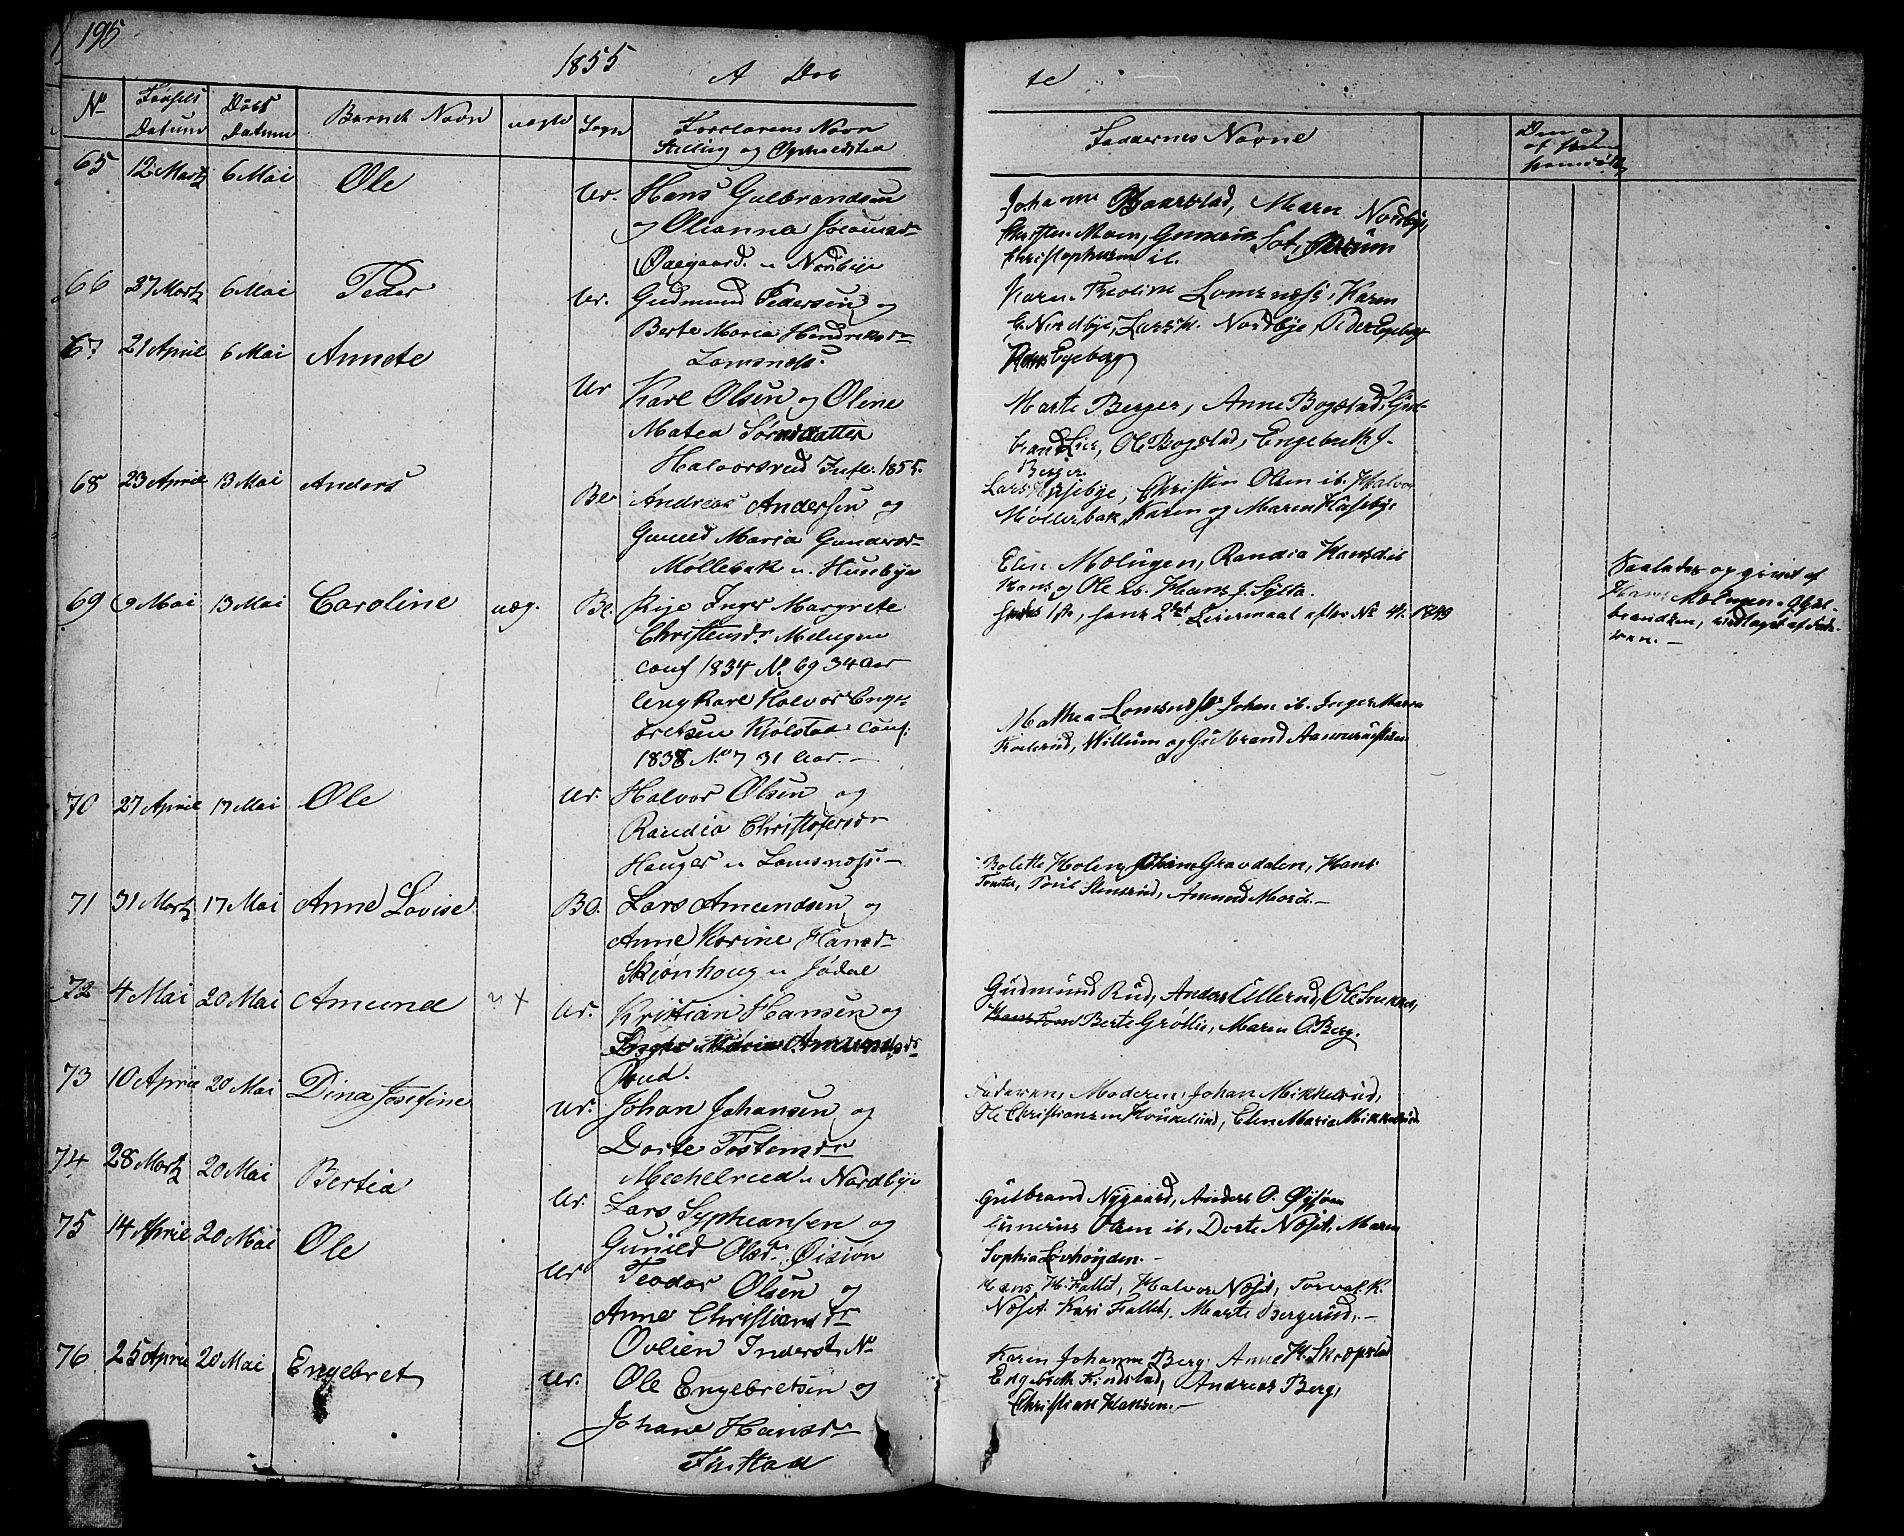 195
1855
A Døb
te
No
Fødsels
Datum
Døbs
Datum
Barnets Navn
uægte
Sogn
Forældrenes Navn
Stilling og Opholdsted
Faddernes Navne
65 12 Martz 6 Mai Ole Ur. Hans Gulbrandsen
og Olianna Johansdr
Ødegaard u Nordbye
Johanne Baarstad, Maren Nordbye,
Christen Moen, Gunerius
Christophersen ib.
66 27 Martz 6 Mai Peder Ur. Gudmund Pedersen og
Berte Maria Hendriksdr
Lomsness.
Karn Lomsness, Karen
G. Nordbye, Lars H. Nordbye, Peder Egeberg
Hans Egeberg
67 21 April 6 Mai Annete Ur Karl Olsen og Oline
Matea Sørnsdatter
Halvorsrud 1855.
Marte Berger, Anne Bogstad, Gul-
brand Lier, Ole Bogstad, Engebreth J.
Berger.
68 23 April 13 Mai Anders Bl Andreas Andersen og
Gunild Maria Gundersdr
Møllebak u. Husebye
Lars Husebye, Christen Olsen ib. Halvor
Møllerbak, Karen og Maren Husebye
69 9 Mai 13 Mai Caroline uæg. Bl. Pige Inger Margrete
Christensdr Melugen
conf 1834 No 69 34 Aar
Ungkarl Halvor Enge-
bretsen Kjølstad conf:
1838 No 7 31 Aar.-
Elen Melugen, Randia Hansd. ib
Hans og Ole ib. Hans J. Sytta.
hans 2det Leiermaal efter No 4. 1849
Saaledes opgivet af
Hans Melugen. Gul-
brandsen, vedtaget af Fade-
ren.-
70 27 April 17 Mai Ole Ur. Halvor Olsen og
Randia Christofersdr
Hauger u Lomsness.-
Mathea Lomsness, Johan ib. Inger Maria
Willum og Gulbrand
71 31 Martz 17 Mai Anne Lovise Bl. Lars Amundsen og
Anne Karine Hansdr
Skjønhoug u Jødal
Bolette Holen, Johan Gravdalen, Hans
Tomter, Stensrud, Amund
72 4 Mai 20 Mai Amund Ur. Kristian Hansen og
Inger Maria Amundsdr
Rud.
Gudmund Rud, Anders Ullerud, Ole
Berte Grøtlie, Maren O. Berg.
73 10 April 20 Mai Dina Josefine Ur. Johan Johansen og
Dorte Tostensdr
Mechelrud u Nordbye
Faderen, Moderen, Johan Mikkelrud,
Ole Christiansen Elen Maria Mikkelrud
74 28 Martz 20 Mai Bertea Ur. Lars Sypheansen og
Gunild Olsdr Øisjon
Gulbrand Nygaard, Anders O. Øysjøen
Gunerius Olsen ib, Dorte Næset, Maren
Sophia Løvhøyden.-
75 14 April 20 Mai Ole Ur Teodor Olsen og
Anne Christiansdr
Ovlien
Hans H. Fallet, Halvor Næset, Torval K.
Næset. Kari Fallet, Marte Bergerud.-
76 25 April 20 Mai Engebret Ur. Ole Engebretsen og
Johane Hansdr
Finstad
Karen Johanne Berg, Anne H. Skrepstad
Engebreth Finstad, Andreas Berg,
Christian Hansen.-